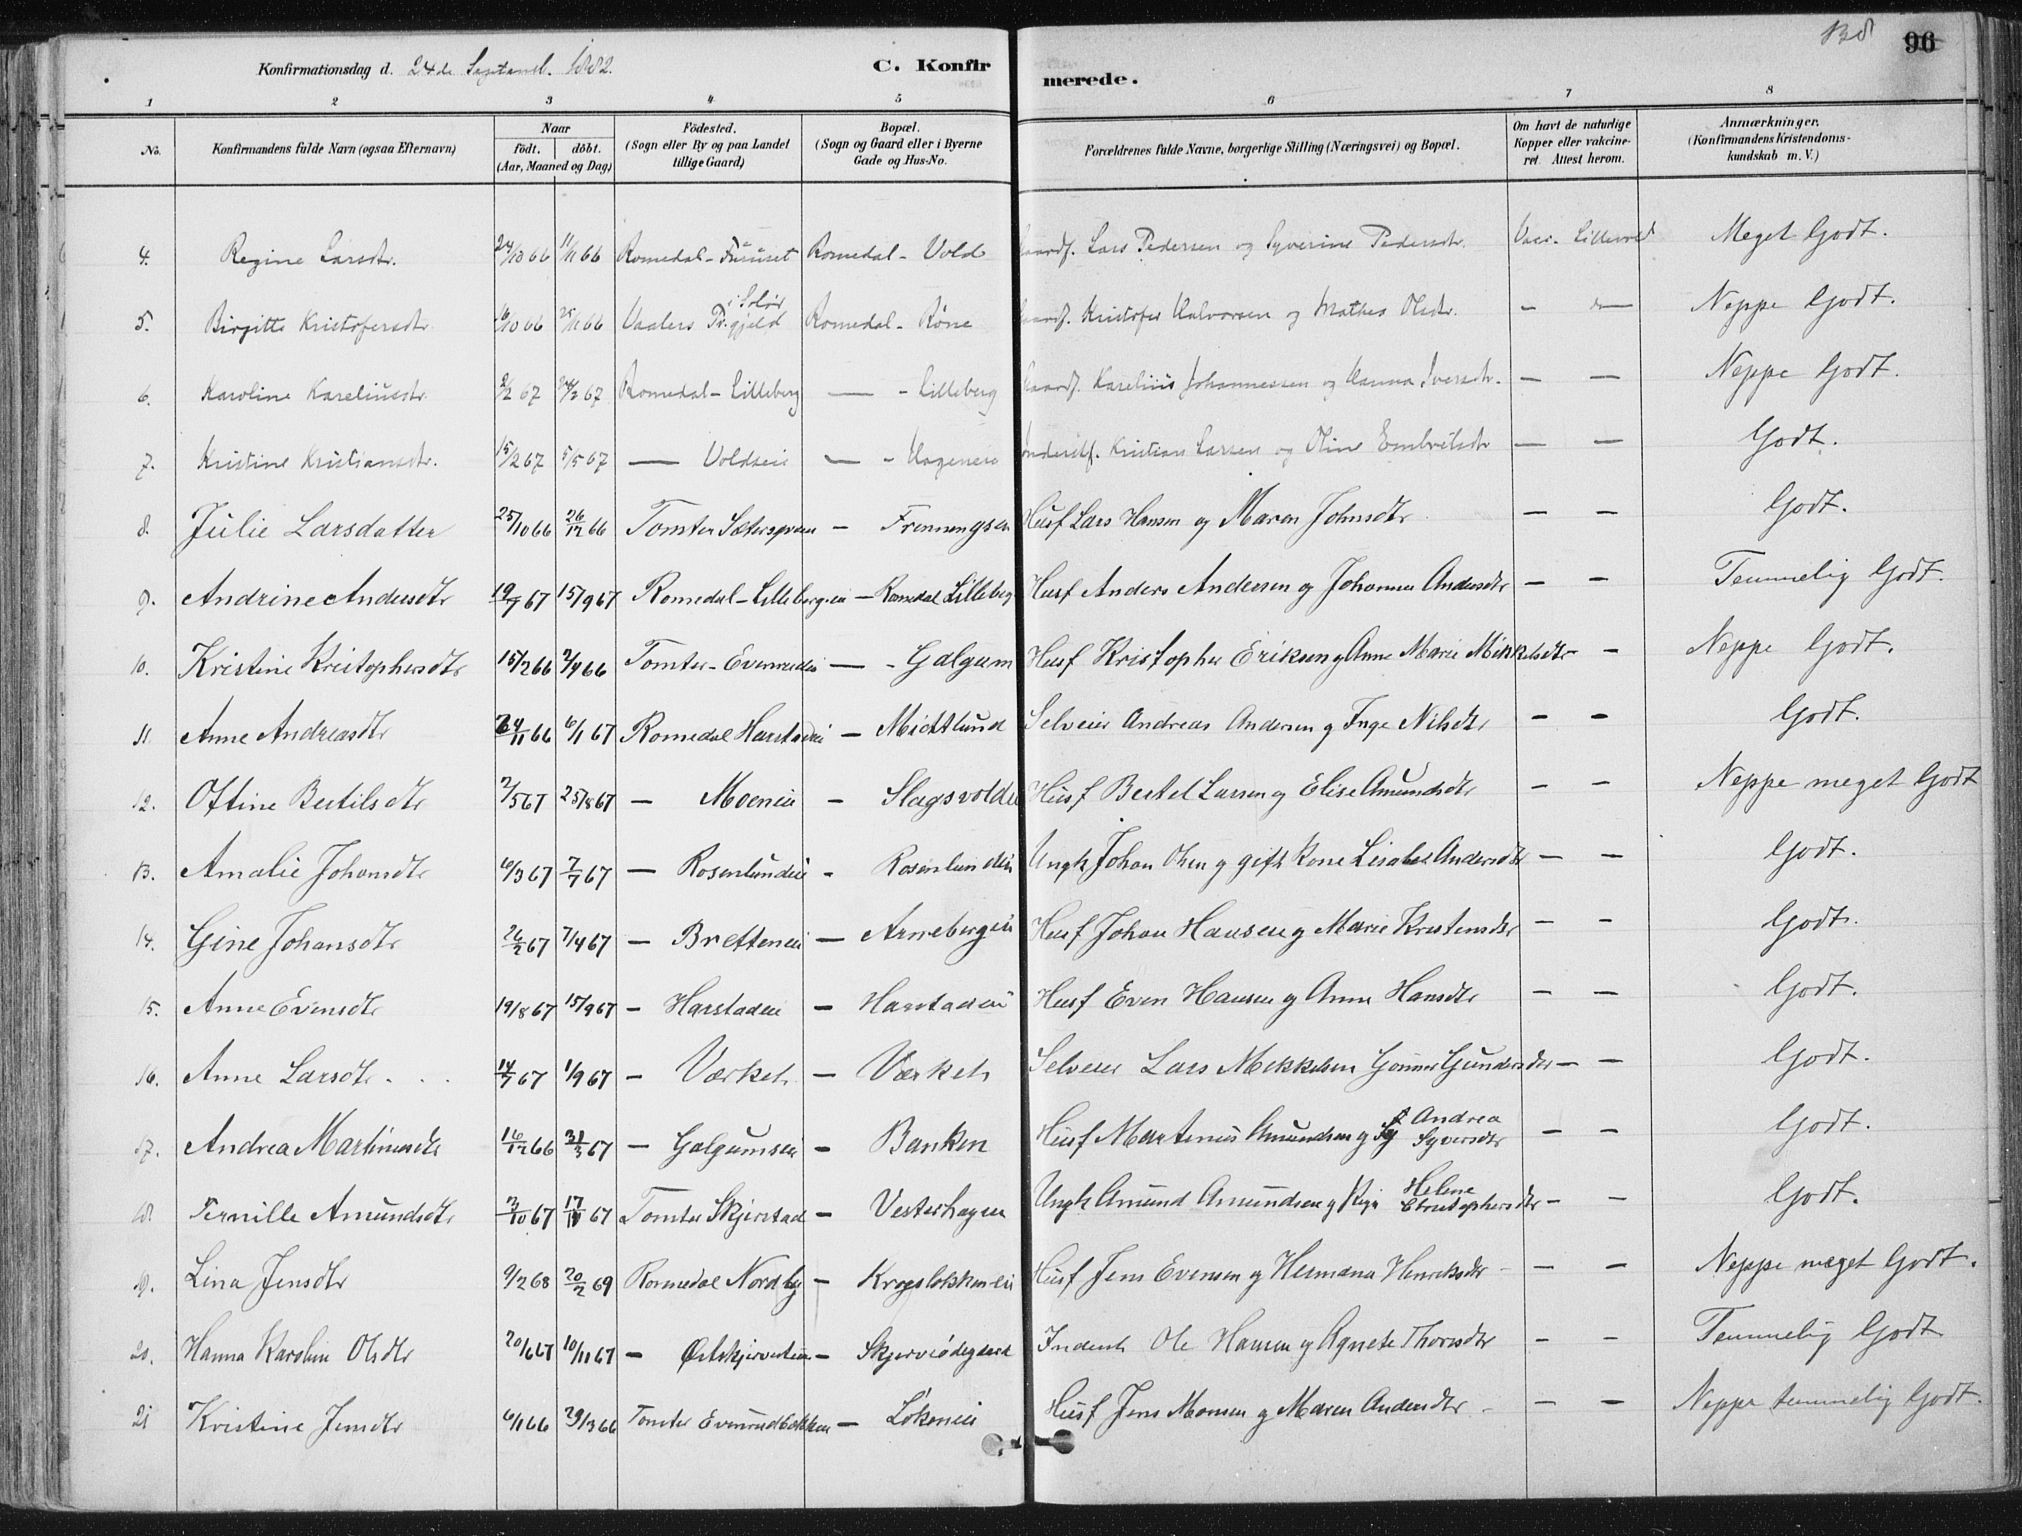 138 96
Konfirmationsdag d. 24de Septemb. 1882. C. Konfirmerede.
1 2 3 4 5 6 7 8
No. Konfirmandens fulde Navn (ogsaa Efternavn) Naar födt. döbt. (Aar, Maaned og Dag) Födested. (Sogn eller By og paa Landet tillige Gaard) Bopæl. (Sogn og Gaard eller i Byerne Gade og Hus-No. Forældrenes fulde Navne, borgerlige Stilling (Næringsvei) og Bopæl. Om havt de naturlige Kopper eller vakcineret. Attest herom. Anmærkninger. (Konfirmandens Kristendomskundskab m. V.)
4. Regine Larsdtr. 24/10 66 11/11 66 Romedal - Furuset Romedal - Vold Gaardf. Lars Pedersen og Syverine Pedersdtr. Vacc. Lillevold Meget Godt.
5. Birgitte Kristofersdtr. 6/10 66 25/11 66 Vaalers Pr.gjeld i Solör Romedal - Röne Gaardf. Kristofer Halvorsen og Mathea Olsdtr. — — Neppe Godt.
6. Karoline Kareliusdtr. 2/2 67 24/2 67 Romedal - Lilleberg — - Lilleberg Gaardf. Karelius Johannessen og Hanna Iversdtr. — — Neppe Godt.
7. Kristine Kristiansdtr. 15/2 67 5/5 67 — Voldseie — - Hageneie Inderstf. Kristian Larsen og Oline Embretsdtr — — Godt.
8. Julie Larsdatter 25/10 66 26/12 66 Tomter Sætersgreen — Frenningsei Husf Lars Hansen og Maren Johnsdtr — — Godt.
9. Andrine Andersdtr 19/7 67 15/9 67 Romedal - Lillebergeie — Romedal Lilleberg Husf Anders Andersen og Johanne Andersdtr — — Temmelig Godt.
10. Kristine Kristophersdtr 15/2 66 2/4 66 Tomter - Evenrudei — - Galgum Husf Kristopher Eriksen og Anne Marie Mikkelsdtr — — Neppe Godt.
11. Anne Andreasdtr 24/11 66 6/1 67 Romedal Harstadei — Midtlund Selveier Andreas Andersen og Inge Nilsdtr — — Godt.
12. Oftine Bertilsdtr 7/5 67 25/8 67 — Moeneie — Slagsvoldei Husf Bertel Larsen og Elise Amundsdtr — — Neppe meget Godt
13. Amalie Johansdtr 6/3 67 7/7 67 — Rosenlundeie - Rosenlundeie Ungk Johan Olsen og gift Kone Lisabet Andersdtr — — Godt.
14. Gine Johansdtr 26/2 67 7/4 67 — Bretteneie — Arnebergeie Husf Johan Hansen og Marie Kristensdtr — — Godt.
15. Anne Evensdtr 19/8 67 15/9 67 — Harstadeie — Harstadeie Husf Even Hansen og Anne Hansdtr — — Godt.
16. Anne Larsdtr . . . 14/7 67 1/9 67 — Værket — Værket Selveier Lars Mikkelsen Gunner Gundersdtr — — Godt.
17. Andrea Martinusdtr 16/12 66 31/3 67 — Galgumseie — Banken Husf Martinus Amundsen og Andrea Syversdtr — — Godt.
18. Pernille Amundsdtr 3/10 67 17/11 67 Tomter Skjerstad — Vesterhagen Ungk Amund Amundsen og Pige Helene Christophersdtr — — Godt.
19. Lina Jensdtr 9/2 68 20/2 69 Romedal Nordby — Krogsløkken eie Husf Jens Evensen og Hermana Henriksdtr — — Neppe meget Godt.
20. Hanna Karoline Olsdtr 20/6 67 10/11 67 — — Skjerviödegaard Inderst Ole Hansen og Agnete Thorsdtr — — Temmelig Godt
21 Kristine Jensdtr 6/1 66 29/3 66 Tomter Evenrudbakken — Lökeneie Husf Jens Monsen og Maren Andersdtr — — Neppe temmelig Godt.